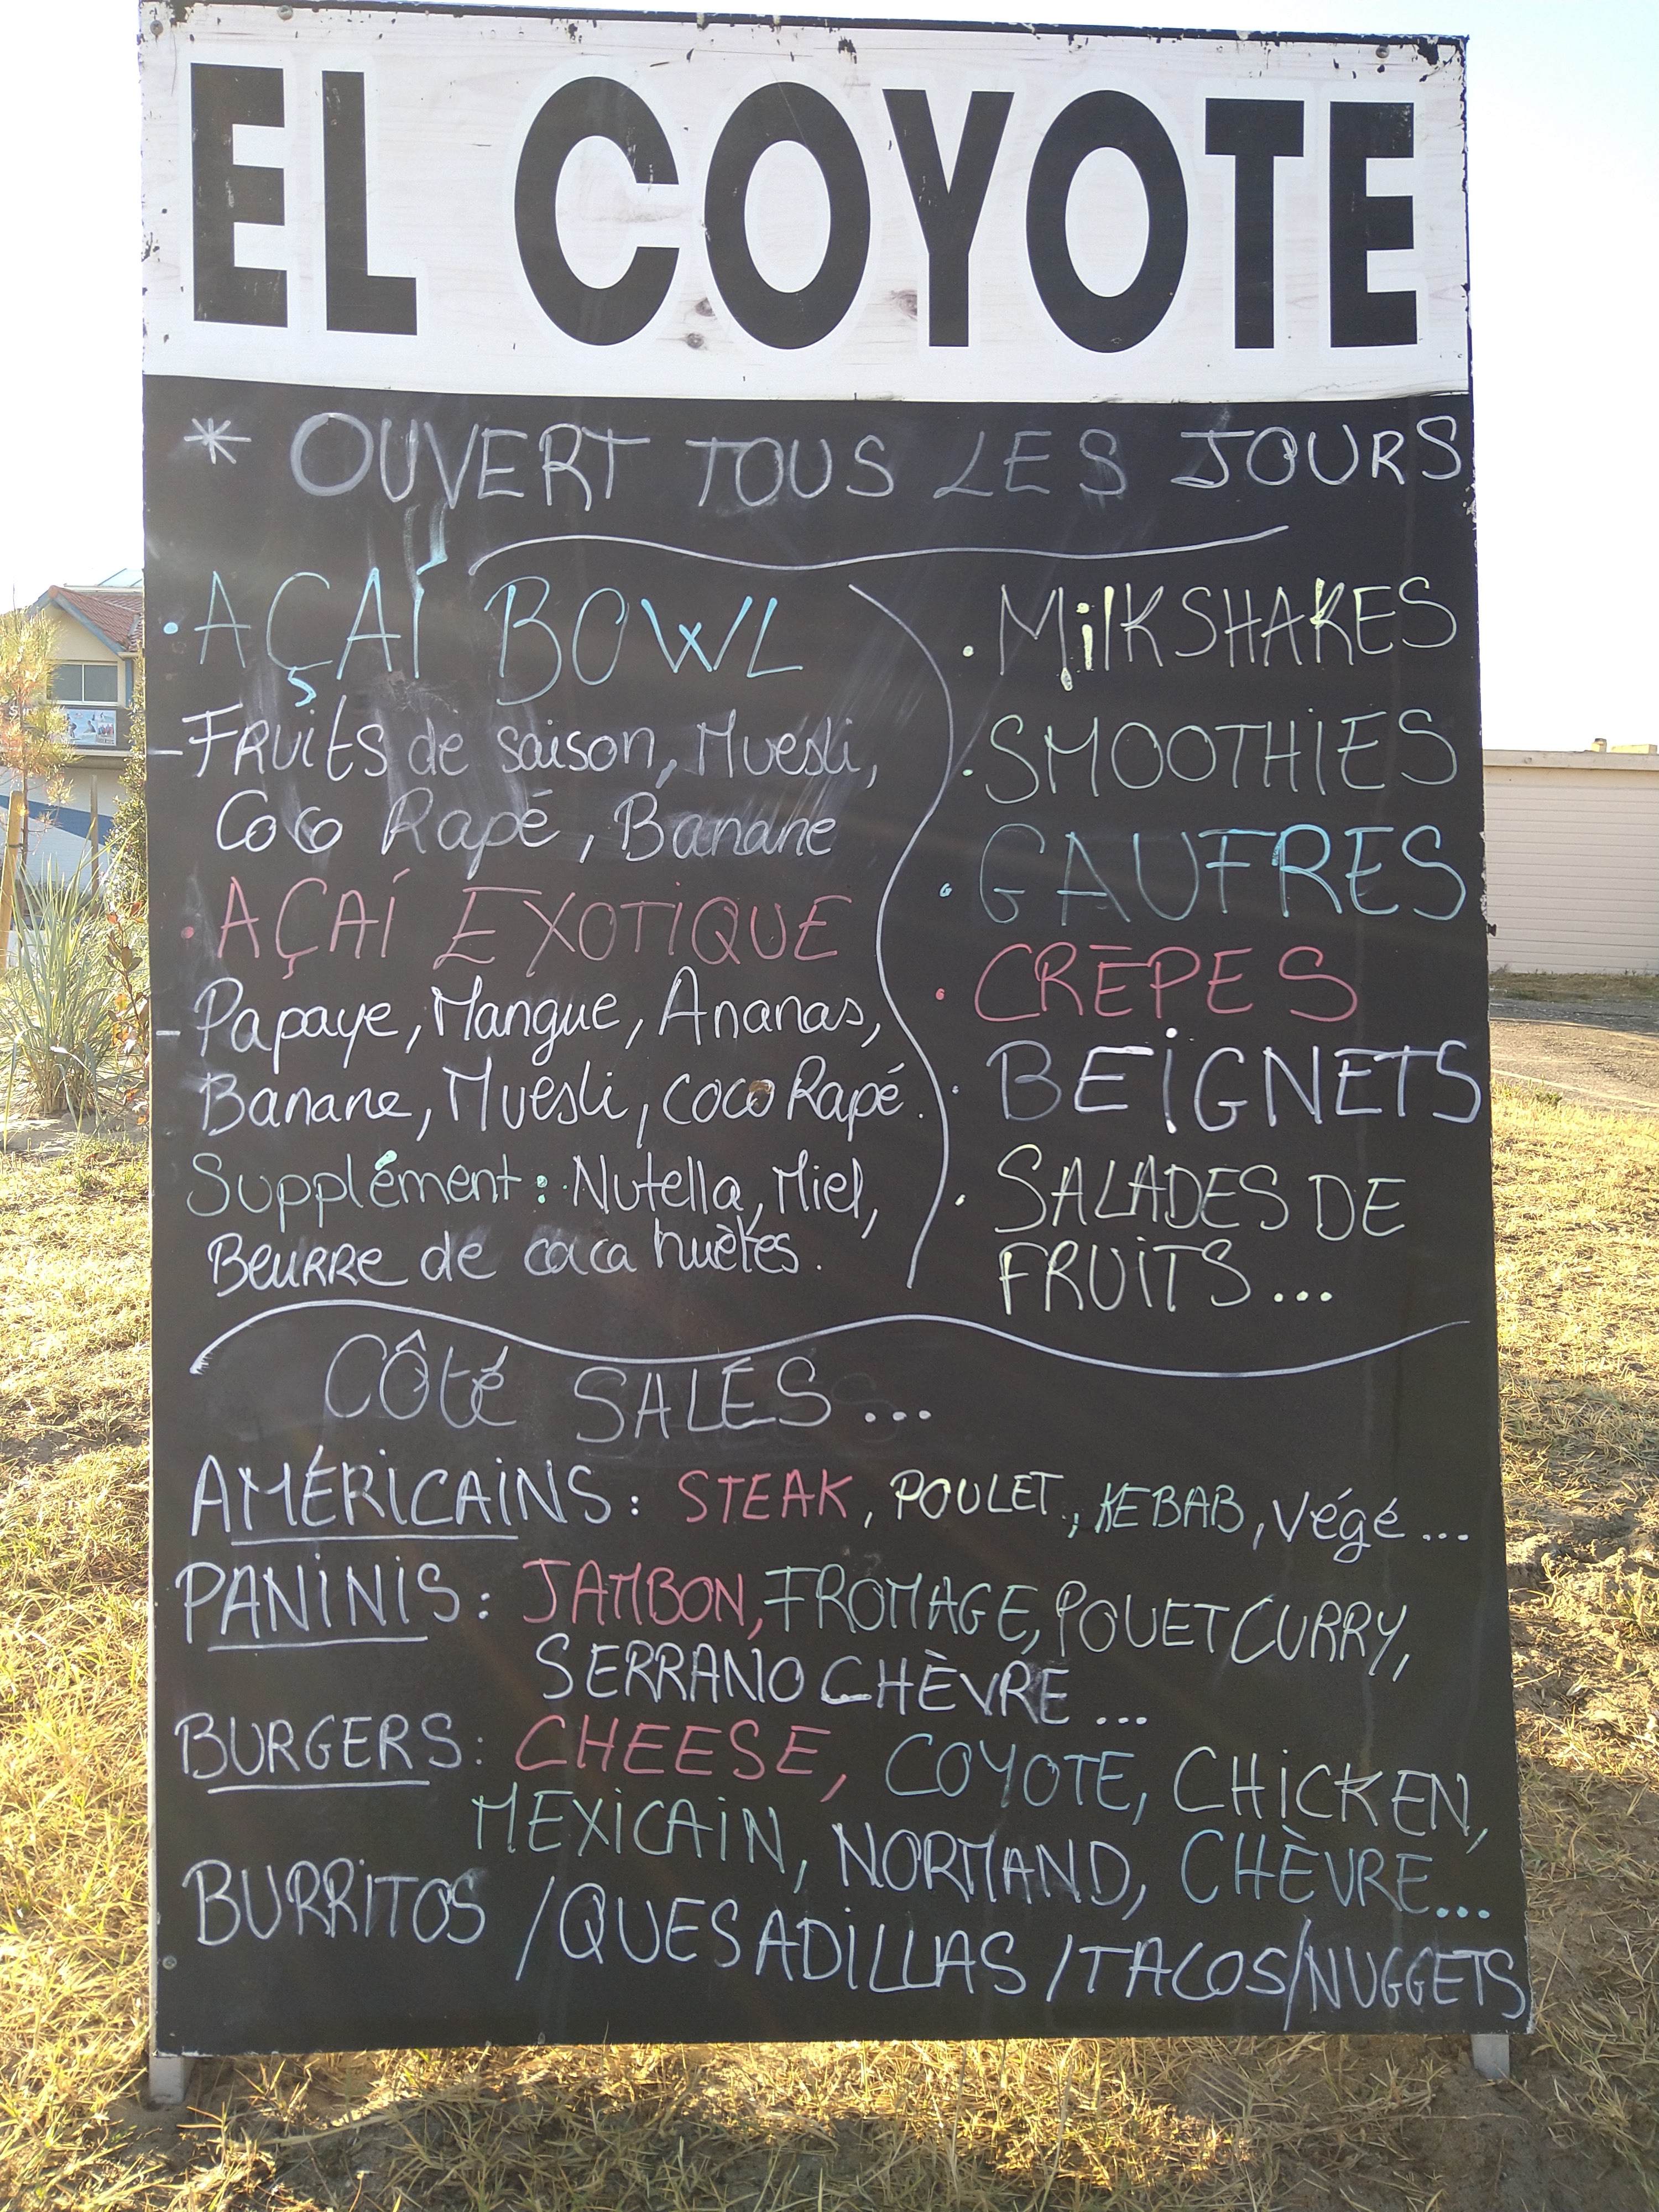 EL COYOTE
* OUVERT TOUS LES JOURS
• AÇAÍ BOWL
- Fruits de saison, Muesli,
Coco Rapé, Banane
• AÇAÍ EXOTIQUE
- Papaye, Mangue, Ananas,
Banane, Muesli, coco Rapé.
Supplément : Nutella, Miel,
Beurre de cacahuètes.
• MilKSHAKES
• SMOOTHiES
• GAUFRES
• CRÊPES
• BEiGNETS
• SALADES DE
FRUiTS...
Côté SALÉS...
AMÉRiCAiNS : STEAK, POULET, KEBAB, Végé...
PANiNiS : JAMBON, FROMAGE, POUET CURRY,
SERRANO CHÈVRE...
BURGERS : CHEESE, COYOTE, CHiCKEN,
MEXiCAiN, NORMAND, CHÈVRE...
BURRiTOS / QUESADiLLAS / TACOS / NUGGETS